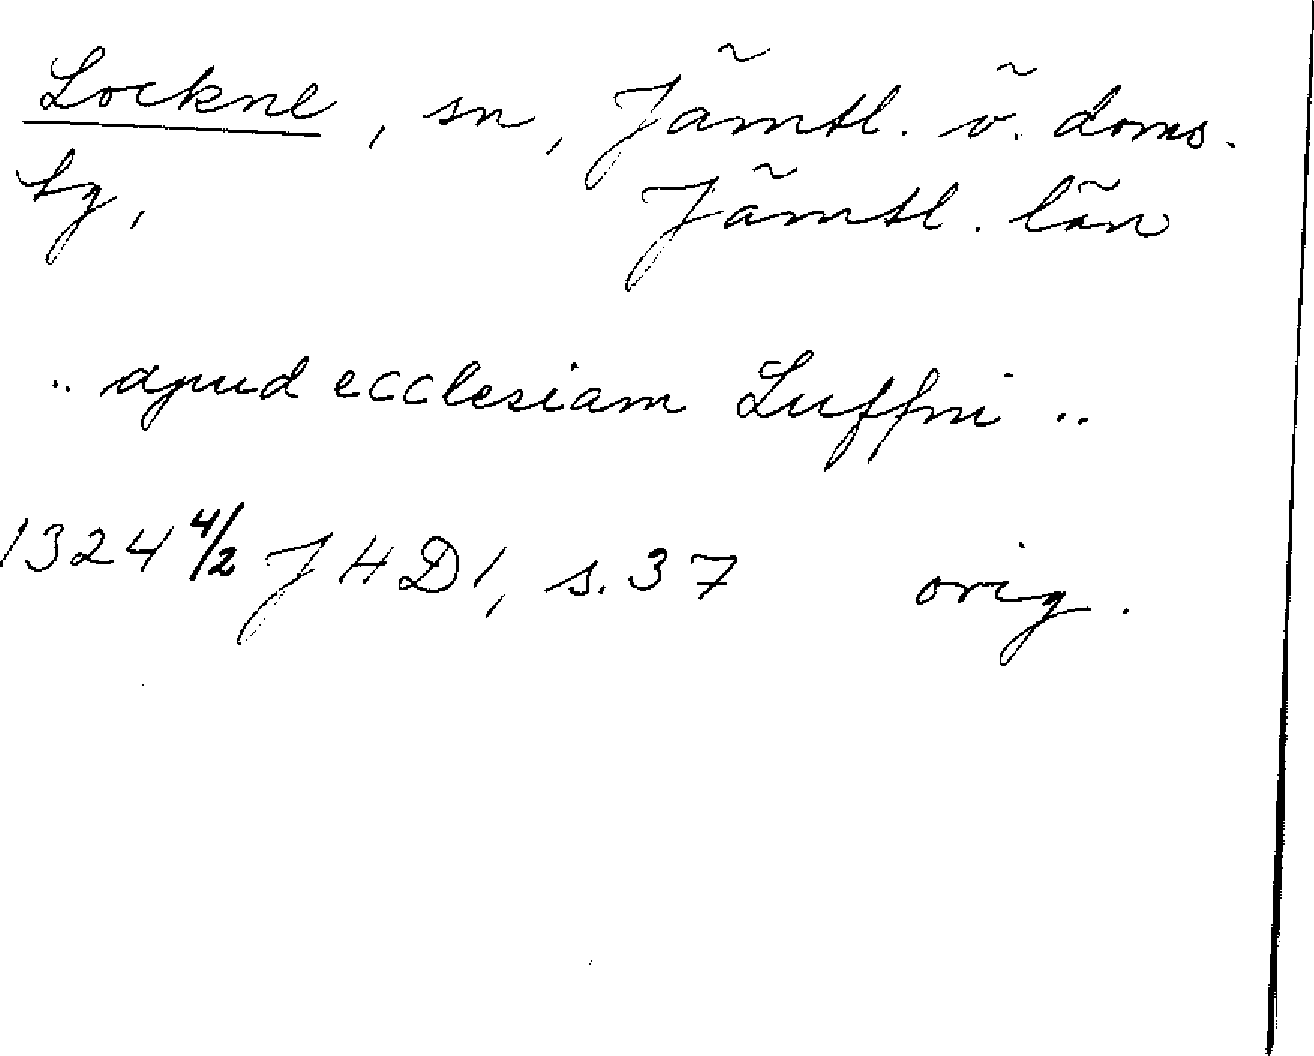 Lockne, sn, Jämtl. ö. doms.
tg, Jämtl. län
.. apud ecclesiam Luffni ..
1324 4/2 J H D 1, s. 37 orig.